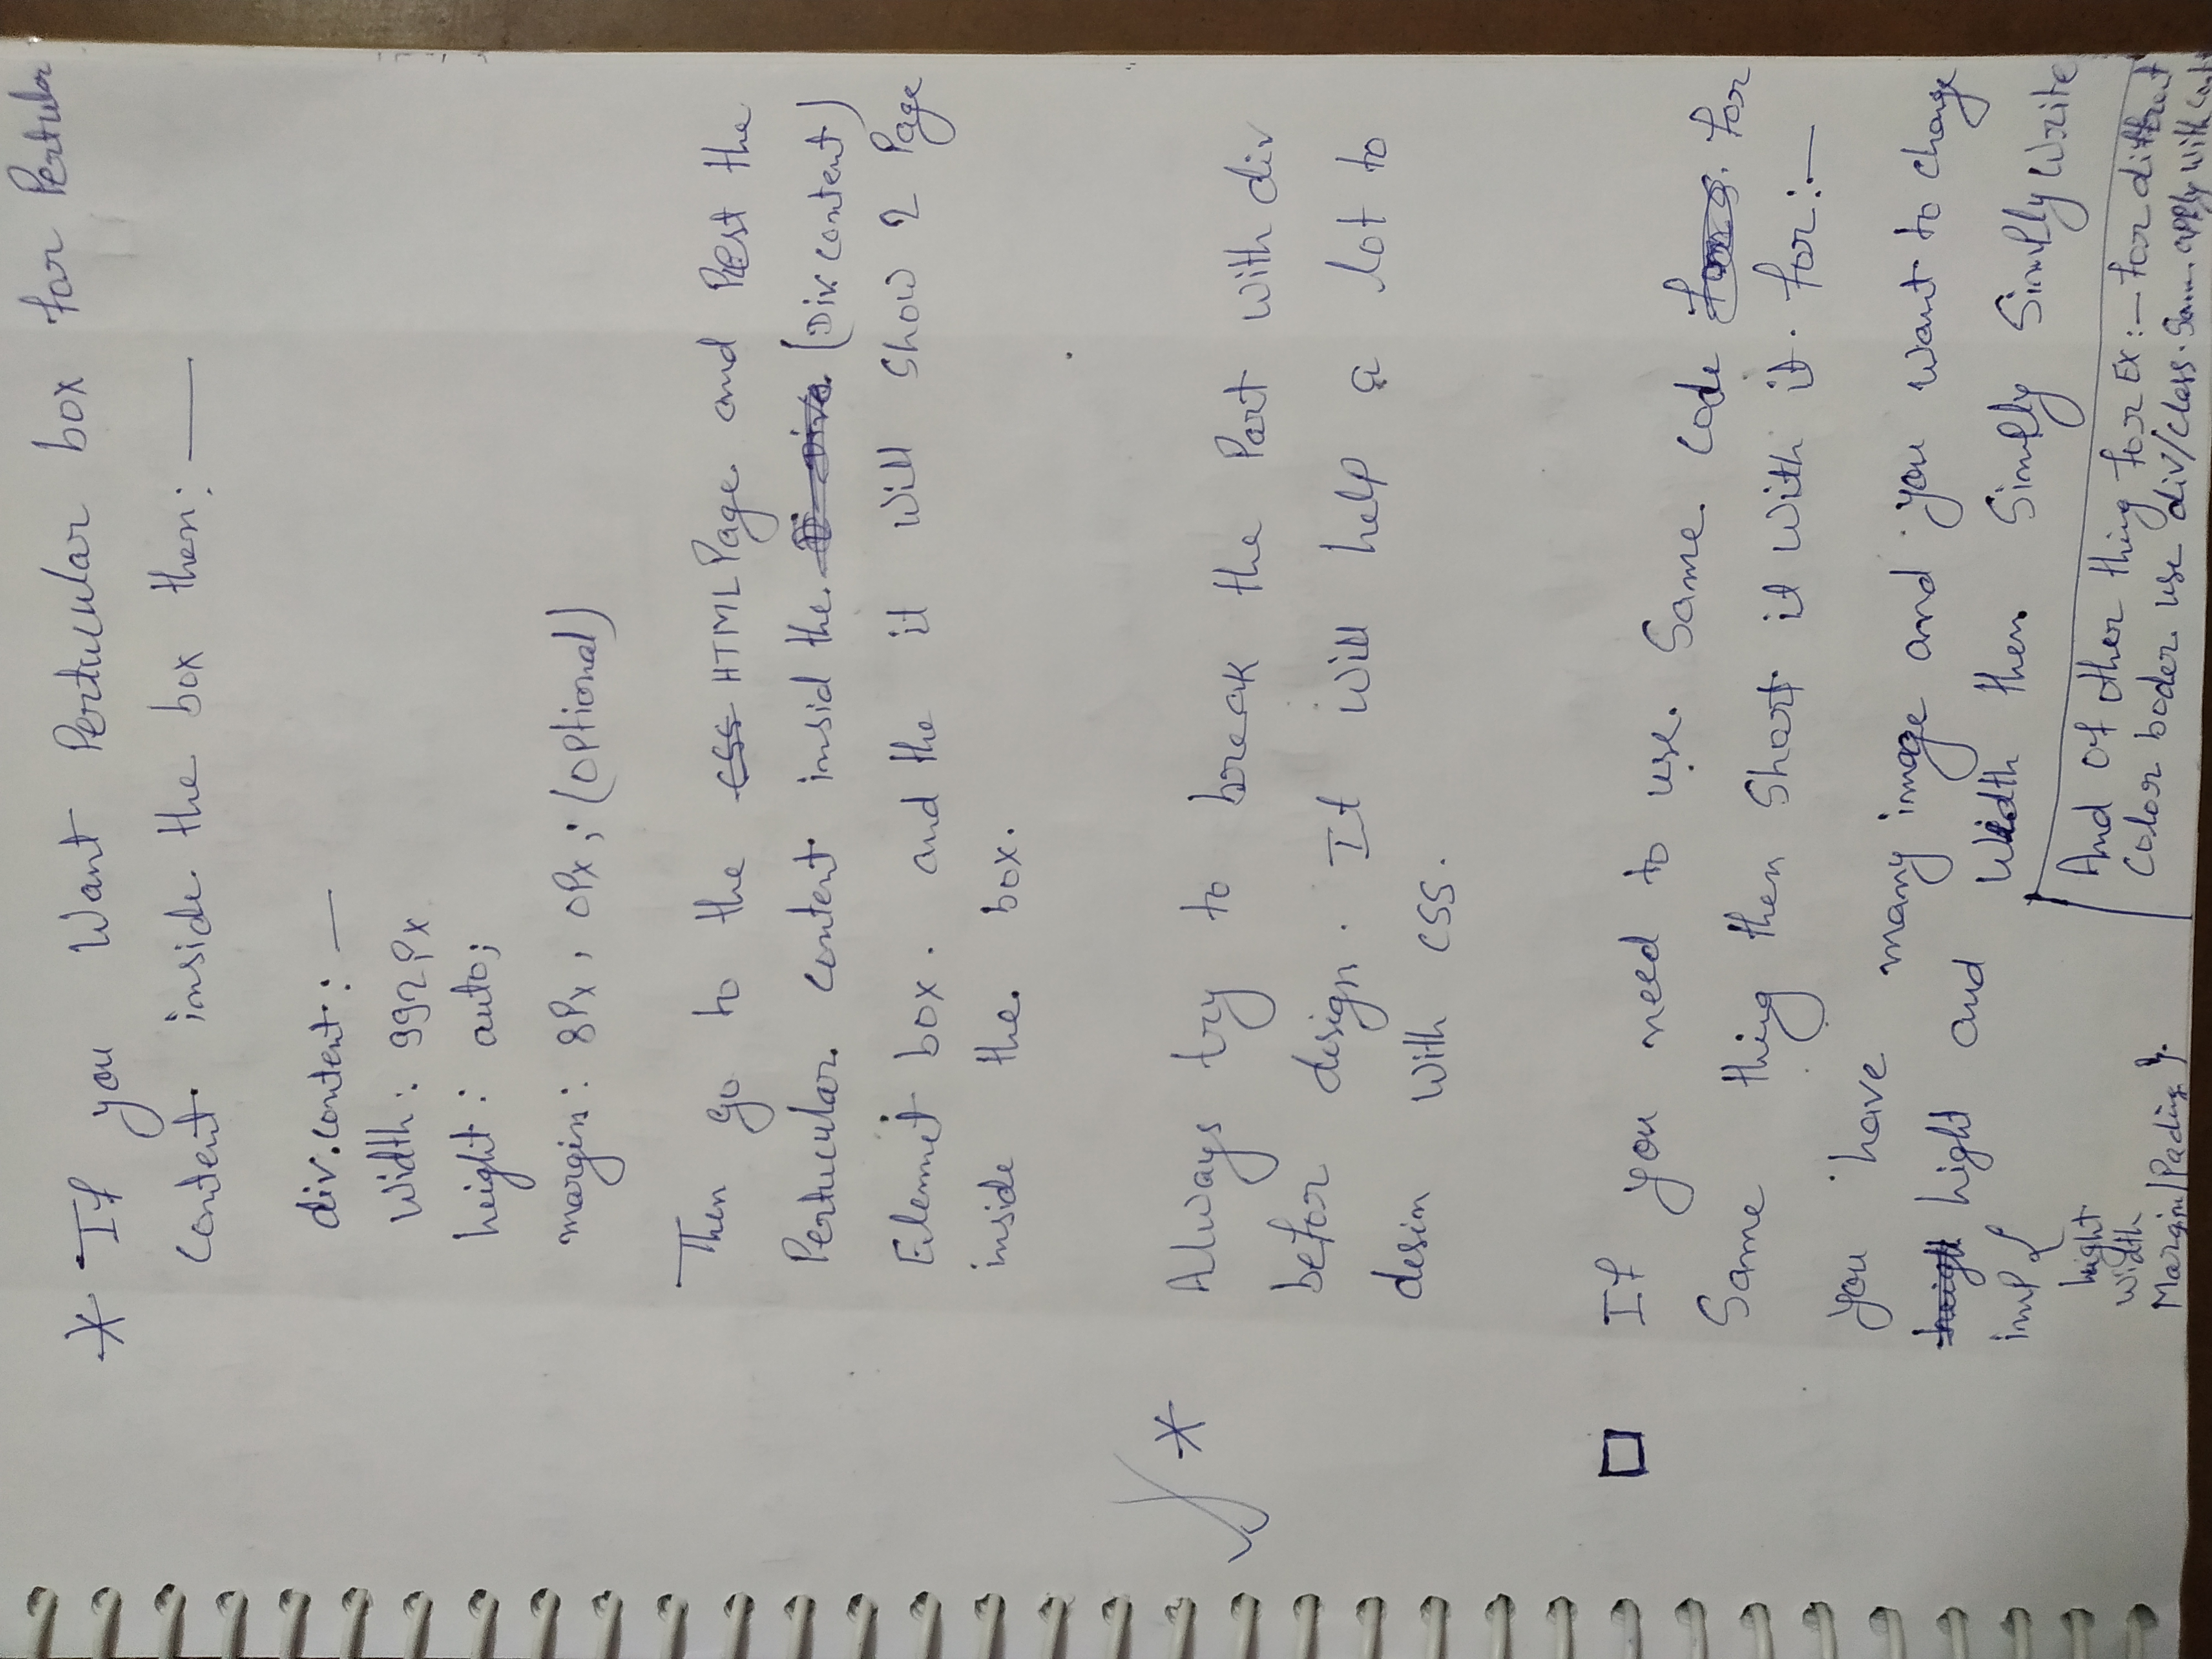 * If you want Perticular box for Perticular
Content inside the box then:—
div.content:—
width: 992Px
height: auto;
margin: 8Px, 0Px; (optional)
Then go to the HTML Page and Pest the
Perticular content insid the (Div content)
Elemnet box. and the it will show 2 Page
inside the box.
* Always try to break the Part with div
befor design. It will help a lot to
desin with CSS.
If you need to use same code for
Same thing then Short it with it. for:—
you have many image and you want to change
hight and Width then Simply Simply Write
img {
hight
width
Margin/Pading }.
And of other thing for Ex:— for diffrent
Color boder use div/class. Same apply with